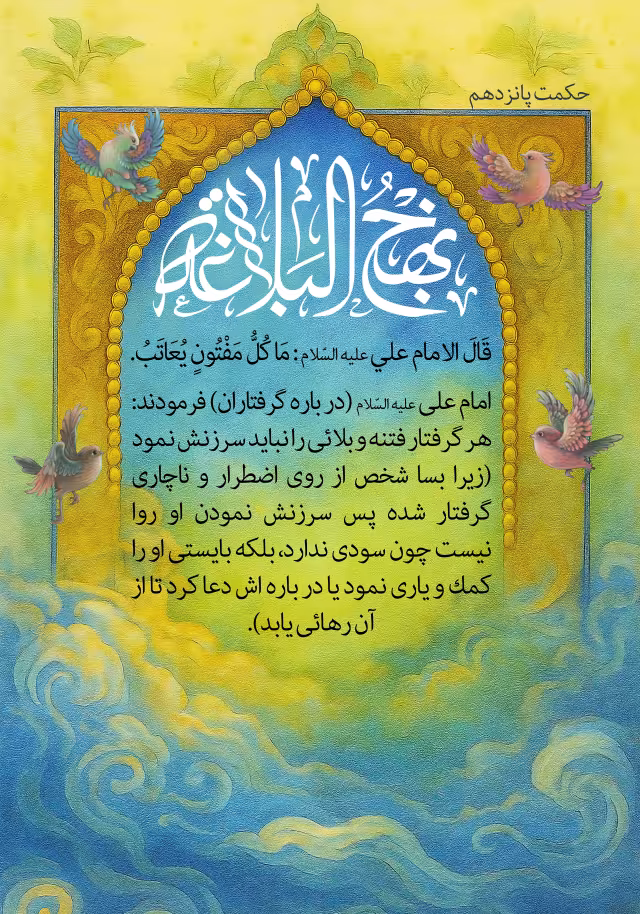 حکمت پانزدهم
نهج البلاغة
قَالَ الامام علي علیه السّلام: مَا كُلُّ مَفْتُونٍ يُعَاتَبُ.
امام علی علیه السّلام (در باره گرفتاران) فرمودند:
هر گرفتار فتنه و بلائی را نباید سرزنش نمود
(زیرا بسا شخص از روی اضطرار و ناچاری
گرفتار شده پس سرزنش نمودن او روا
نیست چون سودی ندارد، بلکه بایستی او را
کمك و یاری نمود یا در باره اش دعا کرد تا از
آن رهائی یابد).